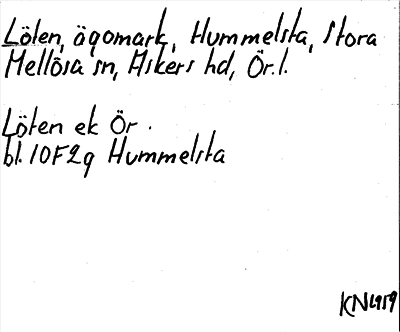 Löten, ägomark, Hummelsta, Stora
Mellösa sn, Askers hd, Ör.l.
Löten ek Ör.
bl. 10F2g Hummelsta
KN1959